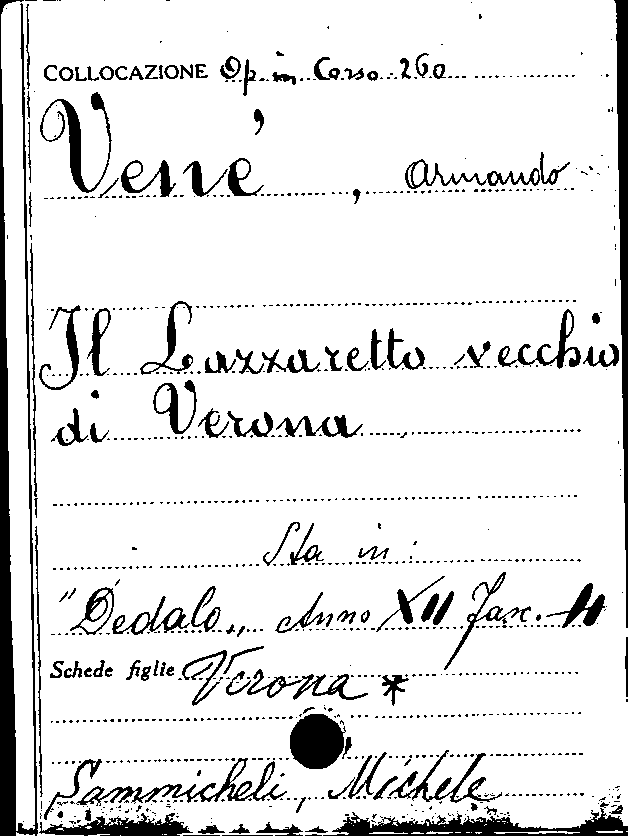 COLLOCAZIONE Op. in Corso 260
Vené, Armando
Il Lazzaretto vecchio
di Verona
Sta in:
"Dedalo„ Anno XII Fasc.
Schede figlie Verona *
Sammicheli, Michele